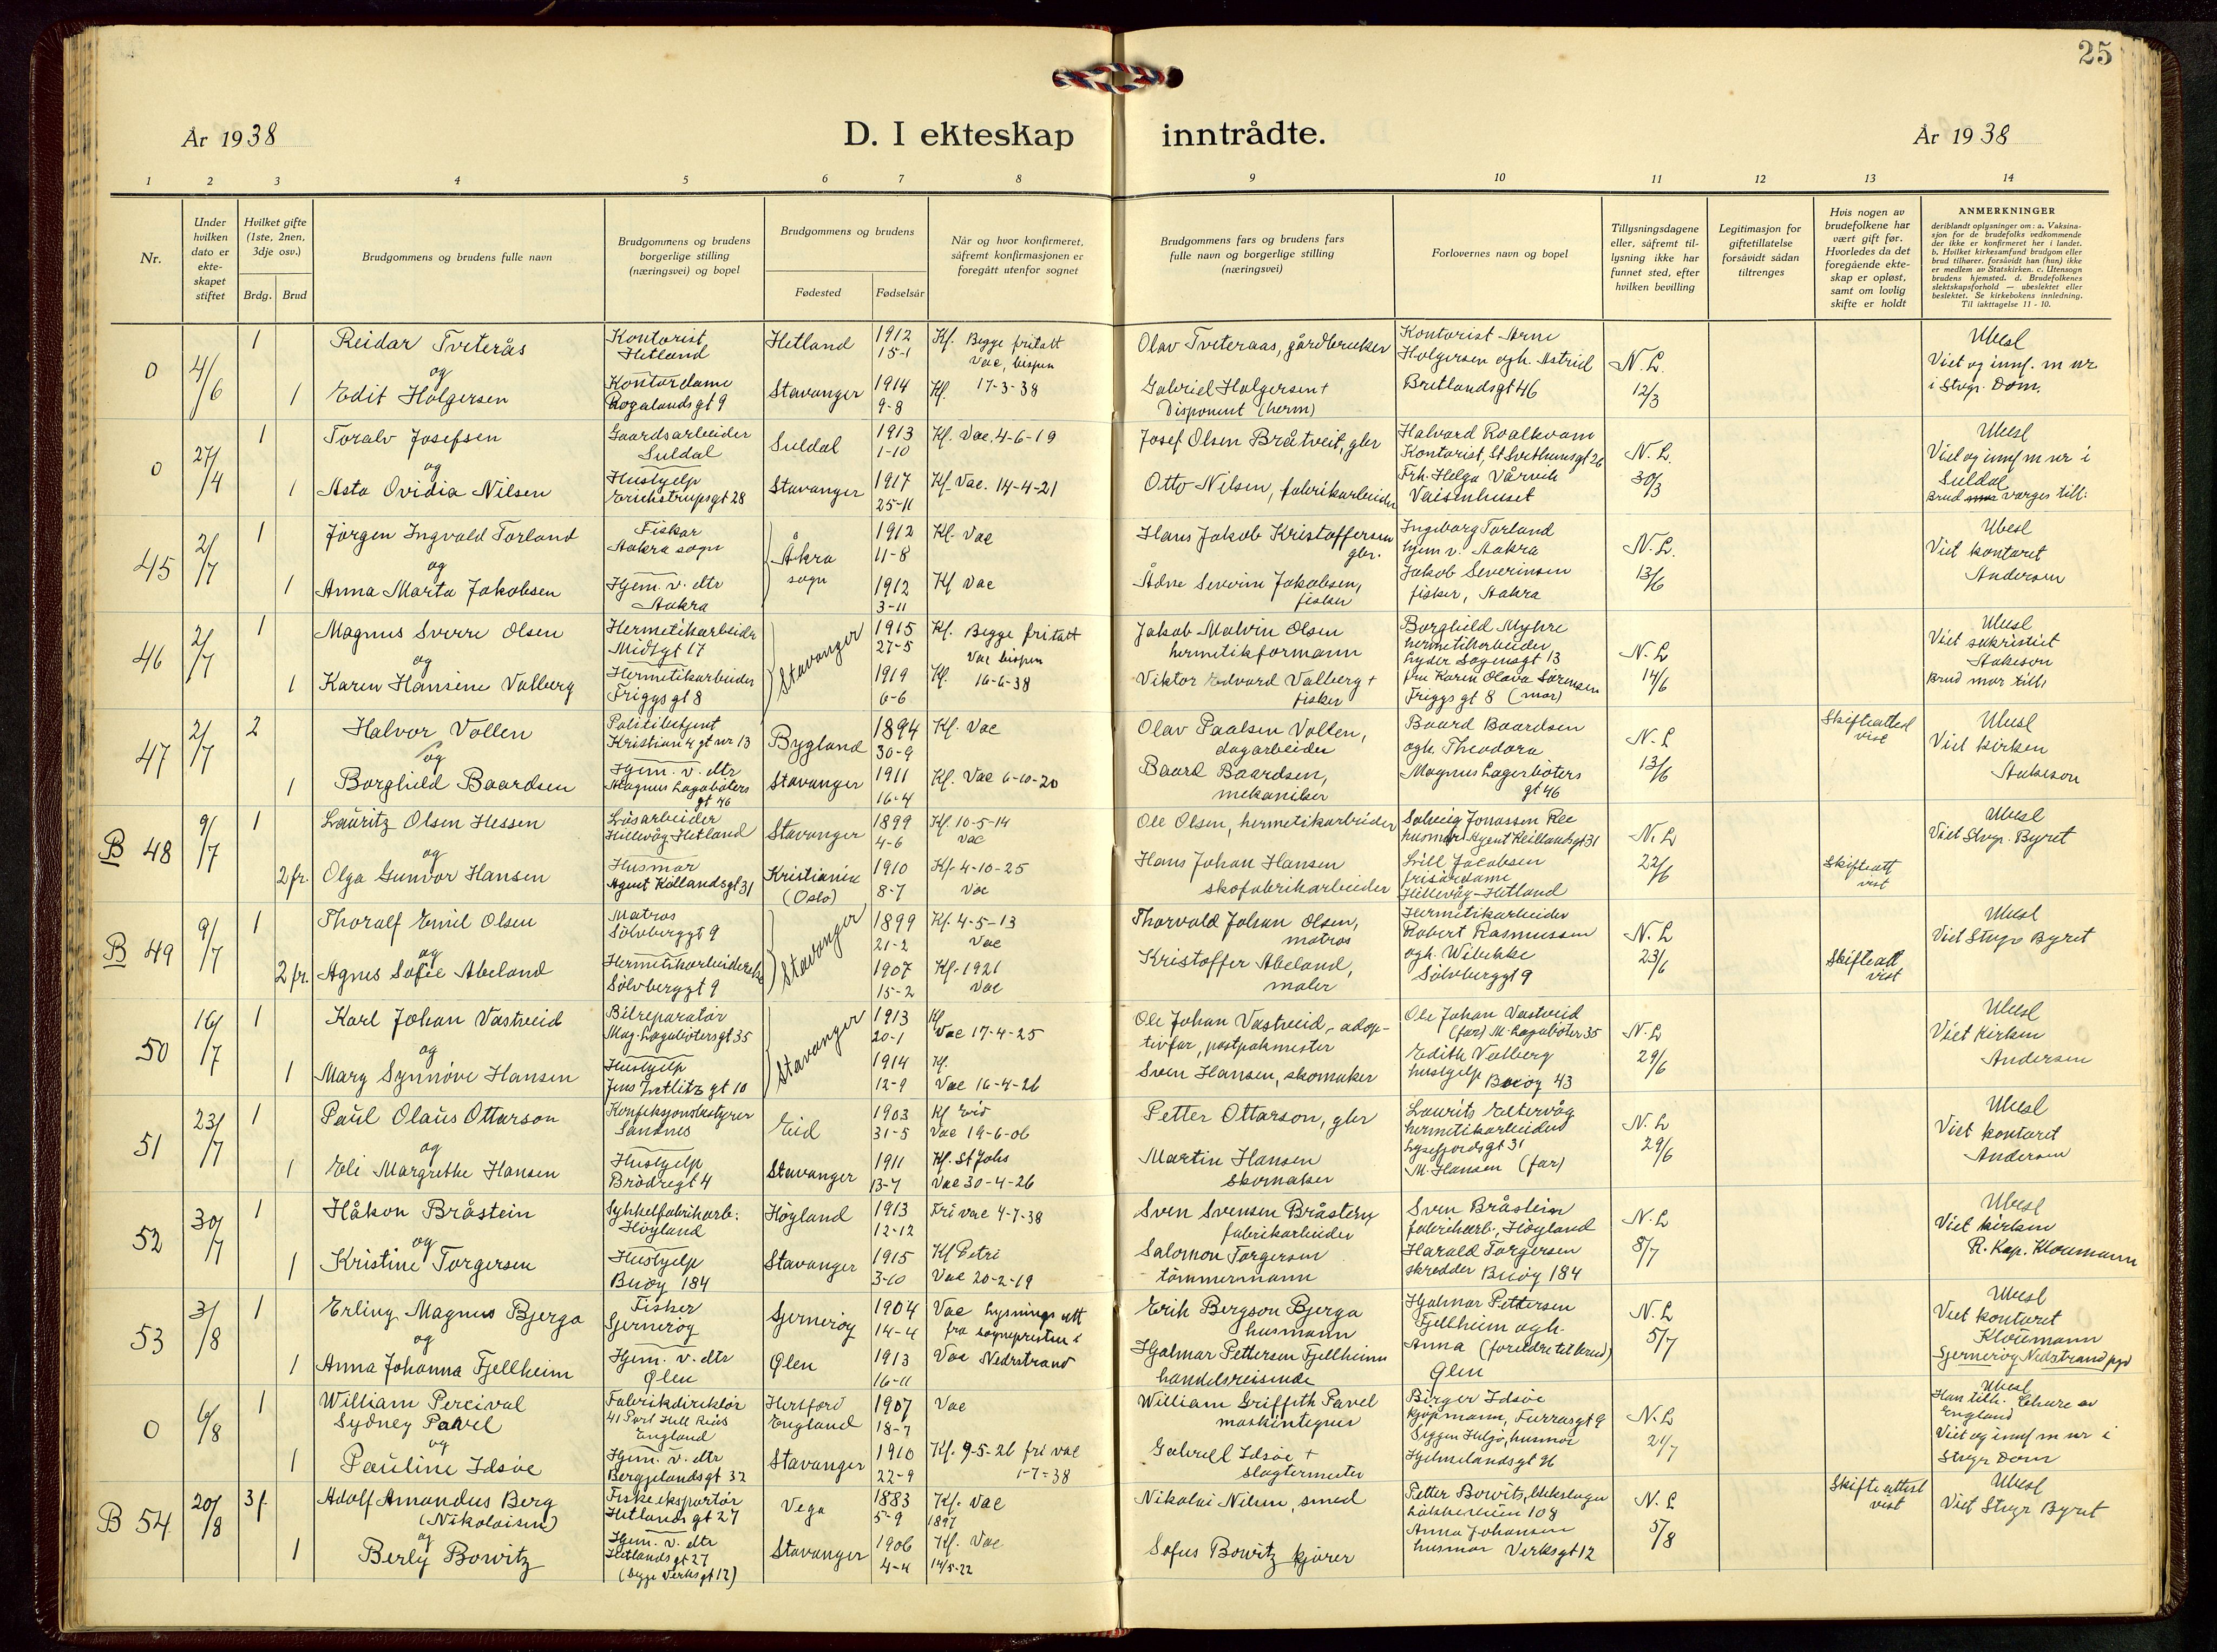 25
År 1938
D. I ekteskap
inntrådte.
År 1938
1
2
3
4
5
6
7
8
9
10
11
12
13
14
Nr.
Under
hvilken
dato er
ekte-
skapet
stiftet
Hvilket gifte
(1ste, 2nen,
3dje osv.)
Brdg.
Brud
Brudgommens og brudens fulle navn
Brudgommens og brudens
borgerlige stilling
(næringsvei) og bopel
Brudgommens og brudens
Fødested
Fødselsår
Når og hvor konfirmeret,
såfremt konfirmasjonen er
foregått utenfor sognet
Brudgommens fars og brudens fars
fulle navn og borgerlige stilling
(næringsvei)
Forlovernes navn og bopel
Tillysningsdagene
eller, såfremt til-
lysning ikke har
funnet sted, efter
hvilken bevilling
Legitimasjon for
giftetillatelse
forsåvidt sådan
tiltrenges
Hvis nogen av
brudefolkene har
vært gift før.
Hvorledes da det
foregående ekte-
skap er opløst,
samt om lovlig
skifte er holdt
ANMERKNINGER
deriblandt oplysninger om: a. Vaksina-
sjon for de brudefolks vedkommende
der ikke er konfirmeret her i landet.
b. Hvilket kirkesamfund brudgom eller
brud tilhører, forsåvidt han (hun) ikke
er medlem av Statskirken. c. Utensogn
brudens hjemsted. d. Brudefolkenes
slektskapsforhold — ubeslektet eller
beslektet. Se kirkebokens innledning.
Til iakttagelse 11 - 10.
0
4/6
1
Reidar Tveterås
og
1
Edit Holgersen
Kontorist
Hetland
Kontordame
Rogalandsgt 9
Hetland
Stavanger
1912
15-1
1914
9-8
Kf. Begge fritatt
Vac, bispen
Kf. 17-3-38
Olav Tveteraas, gårdbruker
Gabriel Holgersen +
Disponent (herm)
Kontorist Arne
Holgersen ogh. Astrid
Bretlandsgt 46
N. L.
12/3
Ubesl
Viet og innf. m nr
i Stvgr. Dom.
0
27/4
1
Toralv Josefsen
og
1
Asta Ovidia Nilsen
Gaardsarbeider
Suldal
Hushjelp
Erichstrupsgt 28
Suldal
Stavanger
1913
1-10
1917
25-11
Kf. Vac. 4-6-19
Kf. Vac. 14-4-21
Josef Olsen Bråtveit, gbr
Otto Nilsen, fabrikarbeider
Halvard Roalkvam
Kontorist, St Svithunsgt 26
Frk. Helga Vårvik
Vaisenhuset
N. L.
30/3
Ubesl
Viet og innf m nr i
Suldal
Brud varges till:
45
2/7
1
Jørgen Ingvald Torland
og
1
Anna Marta Jakobsen
Fiskar
Aakra sogn
Hjem. v. dtr
Aakra
Åkra
sogn
1912
11-8
1912
3-11
Kf. Vac
Kf Vac
Hans Jakob Kristoffersen
gbr.
Ådne Severin Jakobsen,
fisker
Ingeborg Torland
hjem v. Aakra
Jakob Severinsen
fisker, Aakra
N. L.
13/6
Ubesl
Viet kontoret
Andersen
46
2/7
1
Magnus Sverre Olsen
og
1
Karen Hansine Valberg
Hermetikarbeider
Midtgt 17
Hermetikarbeider
Friggsgt 8
Stavanger
1915
27-5
1919
6-6
Kf. Begge fritatt
Vac bispen
Kf. 16-6-38
Jakob Malvin Olsen
hermetikformann
Viktor Edvard Valberg +
fisker
Borghild Myhre
hermetikarbeider
Lyder Sagensgt 13
fru Karen Olava Sørensen
Friggs gt 8 (mor)
N. L
14/6
Ubesl
Viet sakristiet
Aakeson
Brud mor till:
47
2/7
2
Halvor Vollen
og
1
Borghild Baardsen
Politibetjent
Kristian 4 gt nr 13
Hjem. v. dtr
Magnus Lagabøters
gt 46
Bygland
Stavanger
1894
30-9
1911
16-4
Kf. Vac
Kf. Vac 6-10-20
Olav Paalsen Vollen,
dagarbeider
Baard Baardsen,
mekaniker
Baard Baardsen
ogh. Theodora
Magnus Lagerbøters
gt 46
N. L
13/6
Skifteattest
vist
Ubesl
Viet kirken
Aakeson
B 48
9/7
1
Lauritz Olsen Hessen
og
2 fr.
Olga Gunvor Hansen
Løsarbeider
Hillevåg-Hetland
Husmor
Agent Kiellandsgt 31
Stavanger
Kristiania
(Oslo)
1899
4-6
1910
8-7
Kf. 10-5-14
Vac
Kf. 4-10-25
Vac
Ole Olsen, hermetikarbeider
Hans Johan Hansen
skofabrikarbeider
Solveig Jonassen Ree
husmor Agent Kiellandsgt 31
Lill Jacobsen
frisørdame
Hillevåg-Hetland
N. L
22/6
Skifteatt
vist
Ubesl
Viet Stvgr. Byret
B 49
9/7
1
Thoralf Emil Olsen
og
2 fr.
Agnes Sofie Abeland
Matros
Sølvberggt 9
Hermetikarbeiderske
Sølvberggt 9
Stavanger
1899
21-2
1907
15-2
Kf. 4-5-13
Vac
Kf. 1921
Vac
Thorvald Johan Olsen,
matros
Kristoffer Abeland,
maler
Hermetikarbeider
Robert Rasmussen
ogh. Wibekke
Sølvberggt 9
N. L
23/6
Skifteatt
vist
Ubesl
Viet Stvgr Byret
50
16/7
1
Karl Johan Vastveid
og
1
Mary Synnøve Hansen
Bilreparatør
Mag. Lagabøtersgt 35
Hushjelp
Jens Zetlitz gt 10
Stavanger
1913
20-1
1914
12-9
Kf.
Vac 17-4-25
Kf.
Vac 16-4-26
Ole Johan Vastveid, adop-
tivfar, postpakmester
Sven Hansen, skomaker
Ole Johan Vastveid
(far) M. Lagabøter 35
Edith Valberg
hushjelp Buøy 43
N. L
29/6
Ubesl
Viet Kirken
Andersen
51
23/7
1
Paul Olaus Ottarson
og
1
Eli Margrethe Hansen
Konfeksjonsbestyrer
Sandnes
Hushjelp
Brødregt 4
Eid
Stavanger
1903
31-5
1911
13-7
Kf Eid
Vac 19-6-06
Kf. St Johs
Vac 30-4-26
Petter Ottarson, gbr
Martin Hansen
Skomaker
Laurits Eltervåg
hermetikarbeider
Lysefjordsgt 31
M. Hansen (far)
N. L
29/6
Ubesl
Viet kontoret
Andersen
52
30/7
1
Håkon Bråstein
og
1
Kristine Torgersen
Sykkelfabrikarb.
Høyland
Hushjelp
Buøy 184
Høyland
Stavanger
1913
12-12
1915
3-10
Fri vac 4-7-38
Kf Petri
Vac 20-2-19
Sven Svensen Bråstein
fabrikarbeider
Salomon Torgersen
tømmermann
Sven Bråstein
fabrikarb., Høyland
Harald Torgersen
skredder Buøy 184
N. L
8/7
Ubesl
Viet kirken
R. Kap. Kloumann
53
3/8
1
Erling Magnus Bjerga
og
1
Anna Johanna Fjellheim
Fisker
Sjernerøy
Hjem. v. dtr
Ølen
Sjernerøy
Ølen
1904
14-4
1913
16-11
Vac Lysnings att
fra sognepresten i
Vac Nedstrand
Erik Bergson Bjerga
husmann
Hjalmar Pettersen Fjellheim
handelsreisende
Hjalmar Pettersen
Fjellheim ogh.
Anna (foreldre til brud)
Ølen
N. L
5/7
Ubesl
Viet kontoret
Kloumann
Sjernerøy Nedstrand pgd
0
6/8
1
William Percival
Sydney Pavel
og
1
Pauline Idsøe
Fabrikdirektør
England
Hjem. v. dtr
Bergjelandsgt 32
Hertford
England
Stavanger
1907
18-7
1910
22-9
Vac
Kf. 9-5-26 fri vac
1-7-38
William Griffith Pavel
maskintegner
Gabriel Idsøe +
Slagtermester
Birger Idsøe
kjøpmann, Furrasgt 9
husmor
Hjelmelandsgt 26
N. L
21/7
Ubesl
Han till. Chure av
England
Viet og innf m nr i
Stvgr Dom
B 54
20/8
3 f.
Adolf Amandus Berg
(Nikolaisen)
og
1
Berly Bowitz
Fiskeeksportør
Hetlandsgt 27
Hjem. v. dtr
Hetlandsgt 27
(begge Verksgt 12)
Vega
Stavanger
1883
5-9
1906
4-4
Kf. Vac
1897
Kf. Vac
14/5-22
Nikolai Nilsen, smed
Sofus Bowitz kjører
Petter Bowitz,
108
Anna Johansen
husmor Verksgt 12
N. L
5/8
Skifteattest
vist
Ubesl
Viet Stvgr Byret